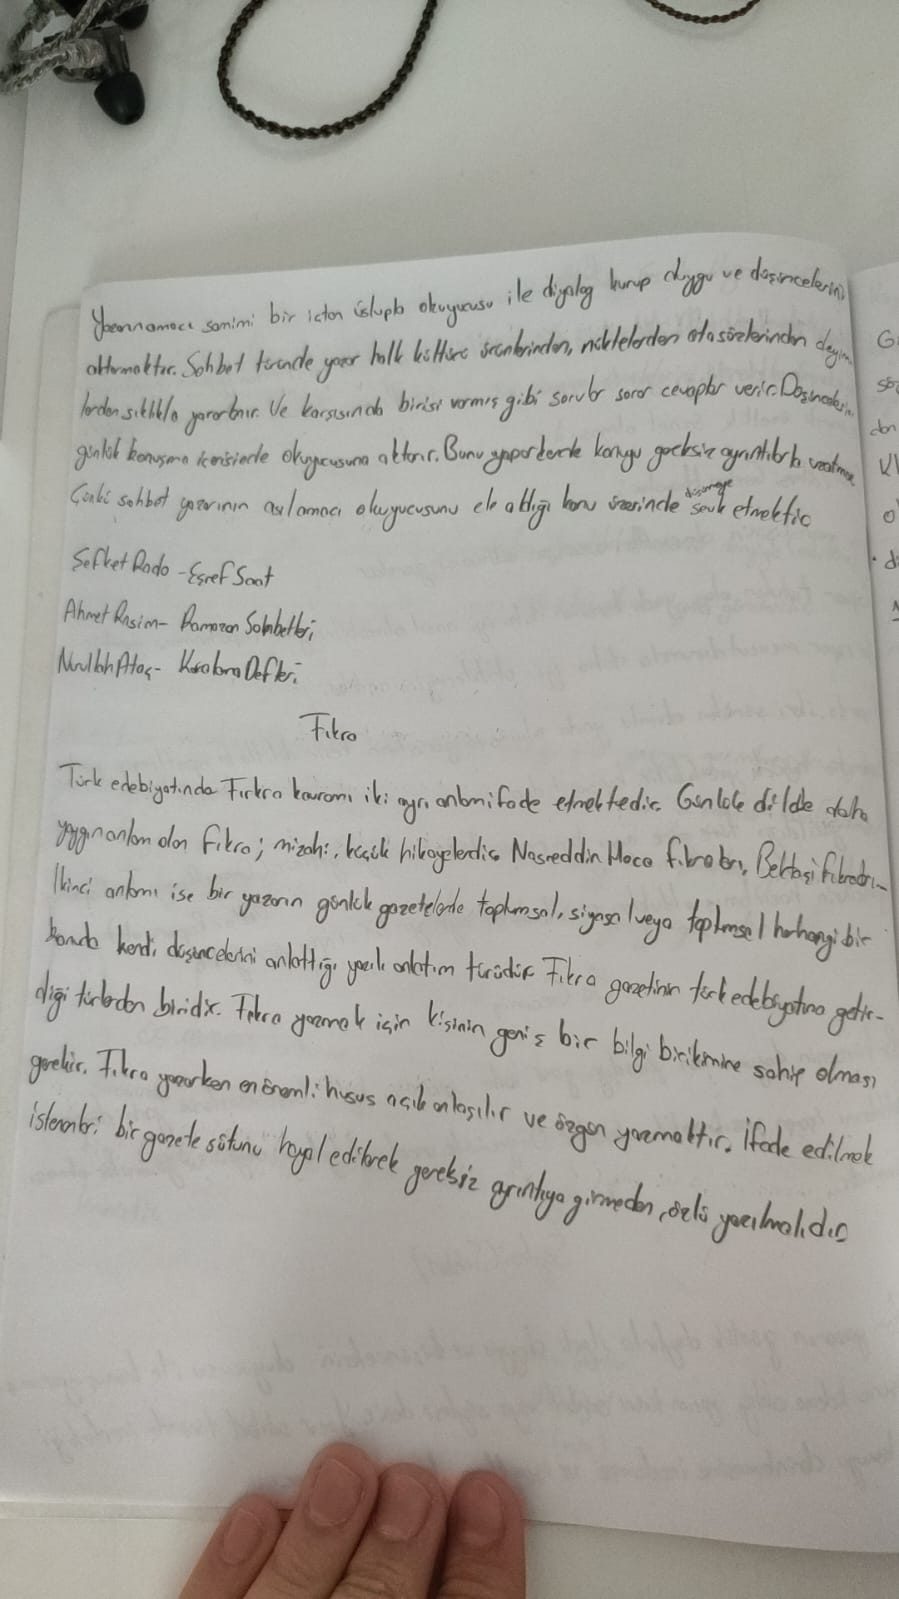 Yazarın amacı samimi bir içten üslupla okuyucusu ile diyalog kurup duygu ve düşüncelerini
aktarmaktır. Sohbet türünde yazar halk kültürü ürünlerinden, nüktelerden atasözlerinden deyim
lerden sıklıkla yararlanır. Ve karşısında birisi varmış gibi sorular sorar cevaplar verir. Düşüncelerini
günlük konuşma içerisinde okuyucusuna aktarır. Bunu yaparkende konuyu gereksiz ayrıntılarla uzatmaz
Çünkü sohbet yazarının asıl amacı okuyucusunu ele aldığı konu üzerinde düşünmeye sevk etmektir
Şefket Rado - Eşref Saat
Ahmet Rasim - Ramazan Sohbetleri
Nurullah Ataç - Karalama Defteri
Fıkra
Türk edebiyatında Fıkra kavramı iki ayrı anlam ifade etmektedir. Günlük dilde daha
yaygın anlam olan fıkra; mizahi, küçük hikayelerdir. Nasreddin Hoca fıkraları, Bektaşi fıkraları-
İkinci anlamı ise bir yazarın günlük gazetelerde toplumsal, siyasal veya toplumsal herhangi bir
konuda kendi düşüncelerini anlattığı yazılı anlatım türüdür Fıkra gazetinin türk edebiyatına getir-
diği türlerden biridir. Fıkra yazmak için kişinin geniş bir bilgi birikimine sahip olması
gerekir. Fıkra yazarken en önemli husus açık anlaşılır ve özgün yazmaktır. İfade edilmek
istenenler bir gazete sütunu hayal edilerek gereksiz ayrıntıya girmeden, özlü yazılmalıdır